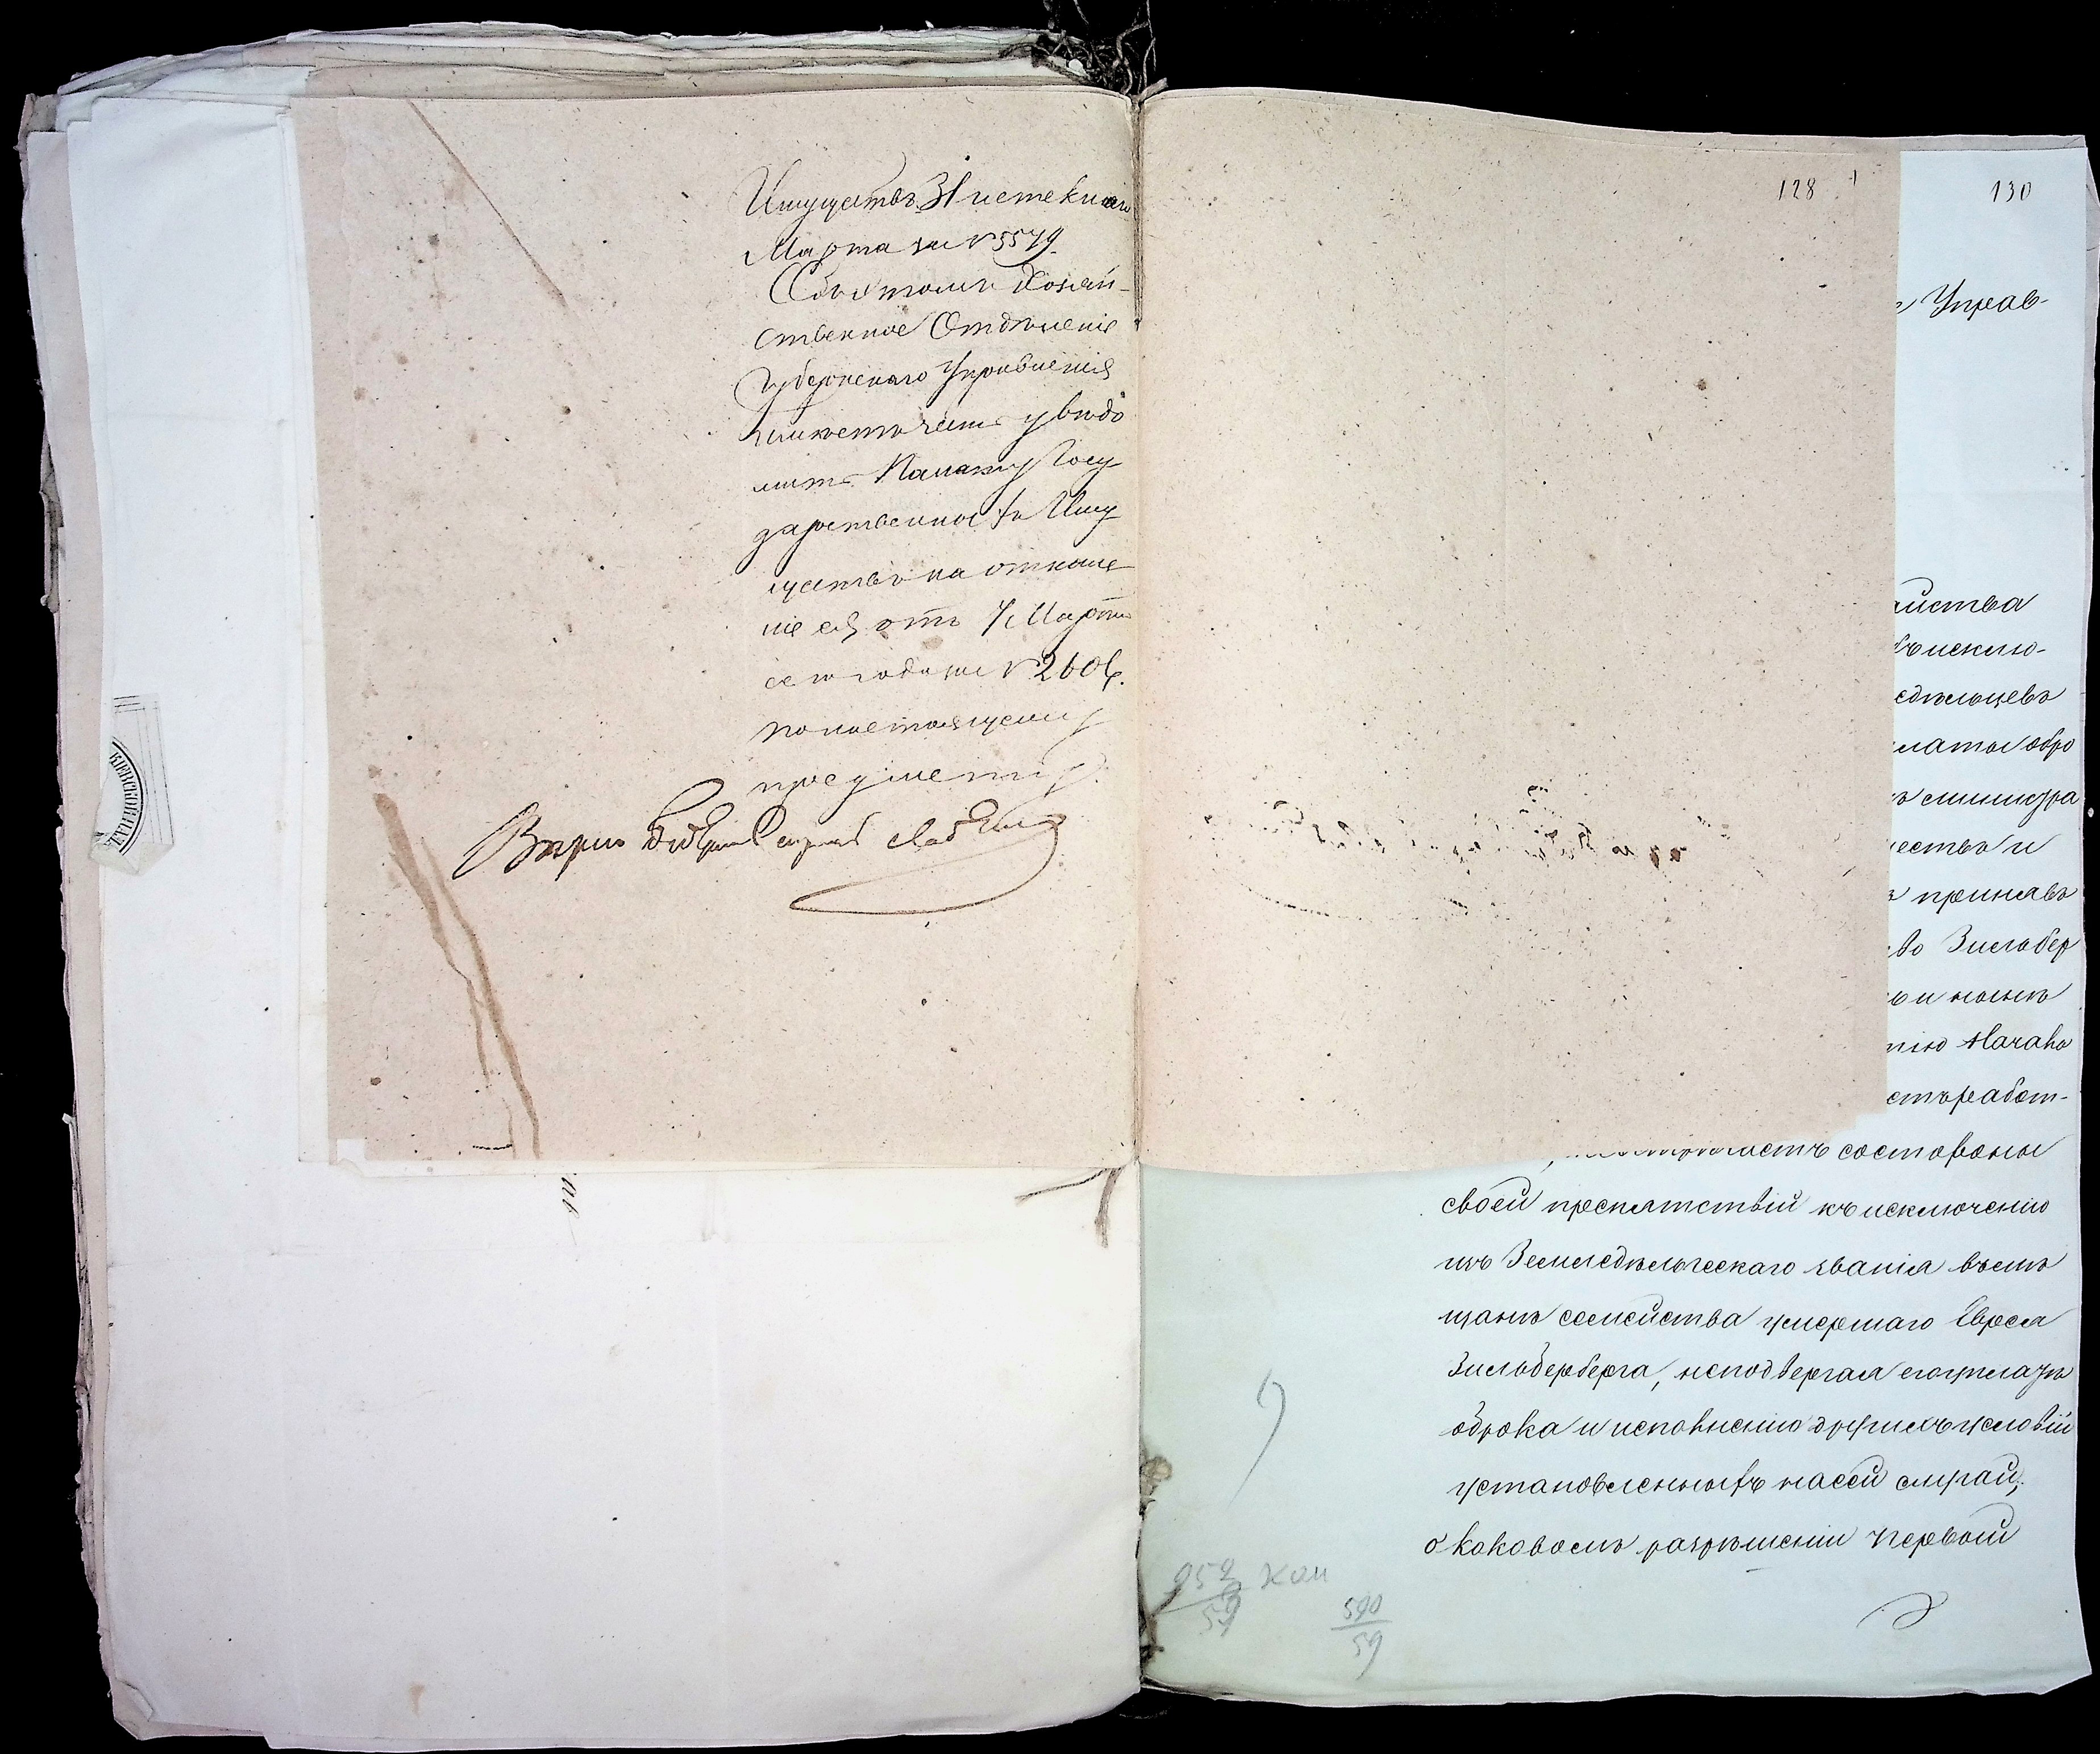 Имуществъ 31 истекшаго
Марта за № 5579.
Объ этомъ Хозяй-
ственное Отдѣленіе
Губернскаго Управленія
имѣетъ честь увѣдо
мить Палату Госу
дарственныхъ Иму
ществъ на отноше
ніе ея отъ 7 Марта
сего года за № 2606.
по настоящему
предмету.
Вѣрно
128
130
Управ-
яйства
исклю-
едѣльцевъ
латы обро
министра
ествъ и
принявъ
Зильбер
Начало
работ-
состороны
своей препятствій къ исключенію
изъ Земледѣльческаго званія въ мѣ
щане семейства умершаго Еврея
Зильберберга, неподвергая его уплатѣ
оброка и исполненію другихъ условій
установленныхъ на сей случай,
о каковомъ разрѣшеніи первой
952 хоз
59
590
59
КІЕВСКОЙ ПАЛ